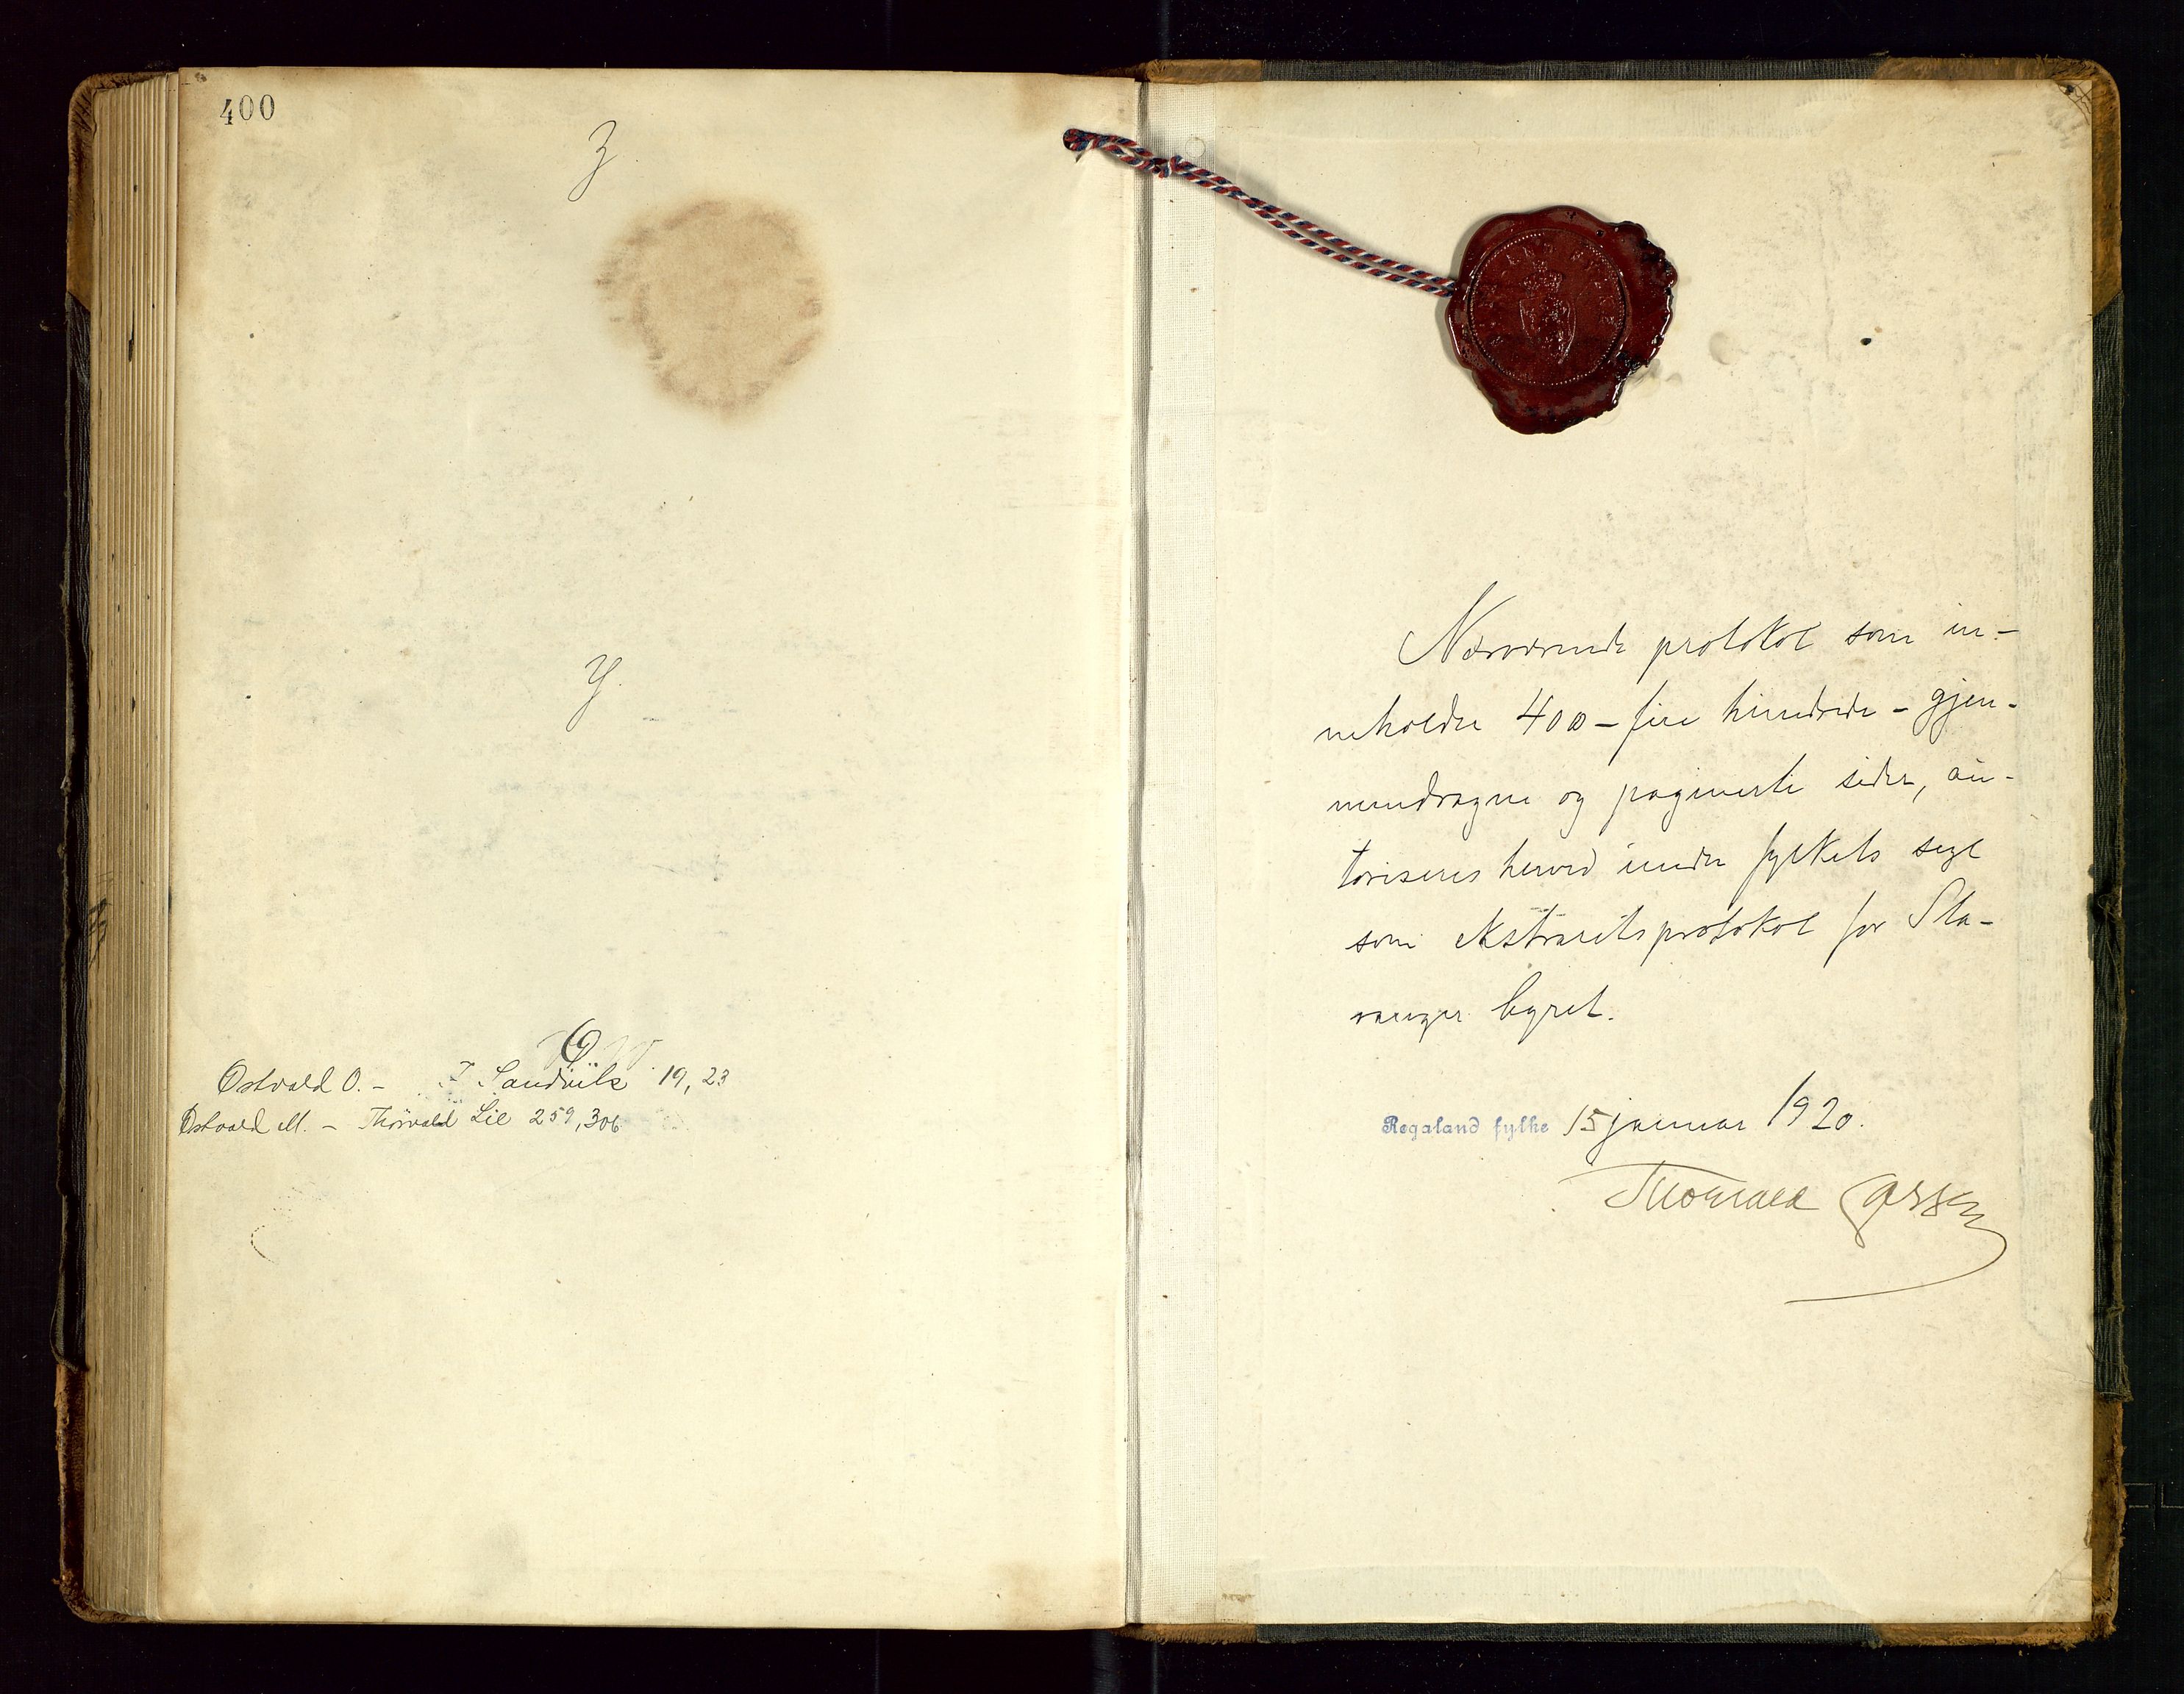 400
Z.
Y.
Ø.
Østvald O. – T. Sandvik 19, 23
Østvold M. – Thorvald Lie 259, 306
Nærværende protokol som in-
neholder 400 – fire hundrede – gjen-
nemdragne og paginerte sider, au-
toriseres herved under fylkets segl
som ekstraretsprotokol for Sta-
vanger byret.
Rogaland fylke 15 januar 1920.
Thorvald